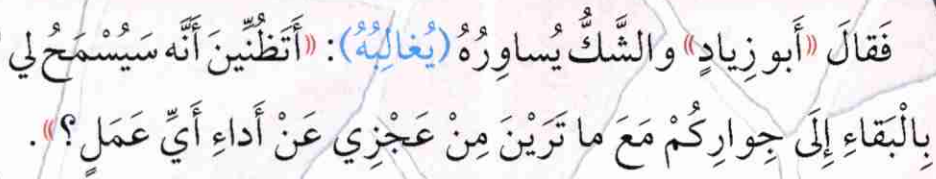 فَقالَ «أَبو زِيادٍ» والشَّكُّ يُساوِرُهُ (يُغالِبُهُ): «أَتَظُنِّينَ أَنَّه سَيُسْمَحُ لي
بِالْبَقاءِ إِلَى جِوارِكُمْ مَعَ ما تَرَيْنَ مِنْ عَجْزِي عَنْ أَداءِ أَيِّ عَمَلٍ؟».